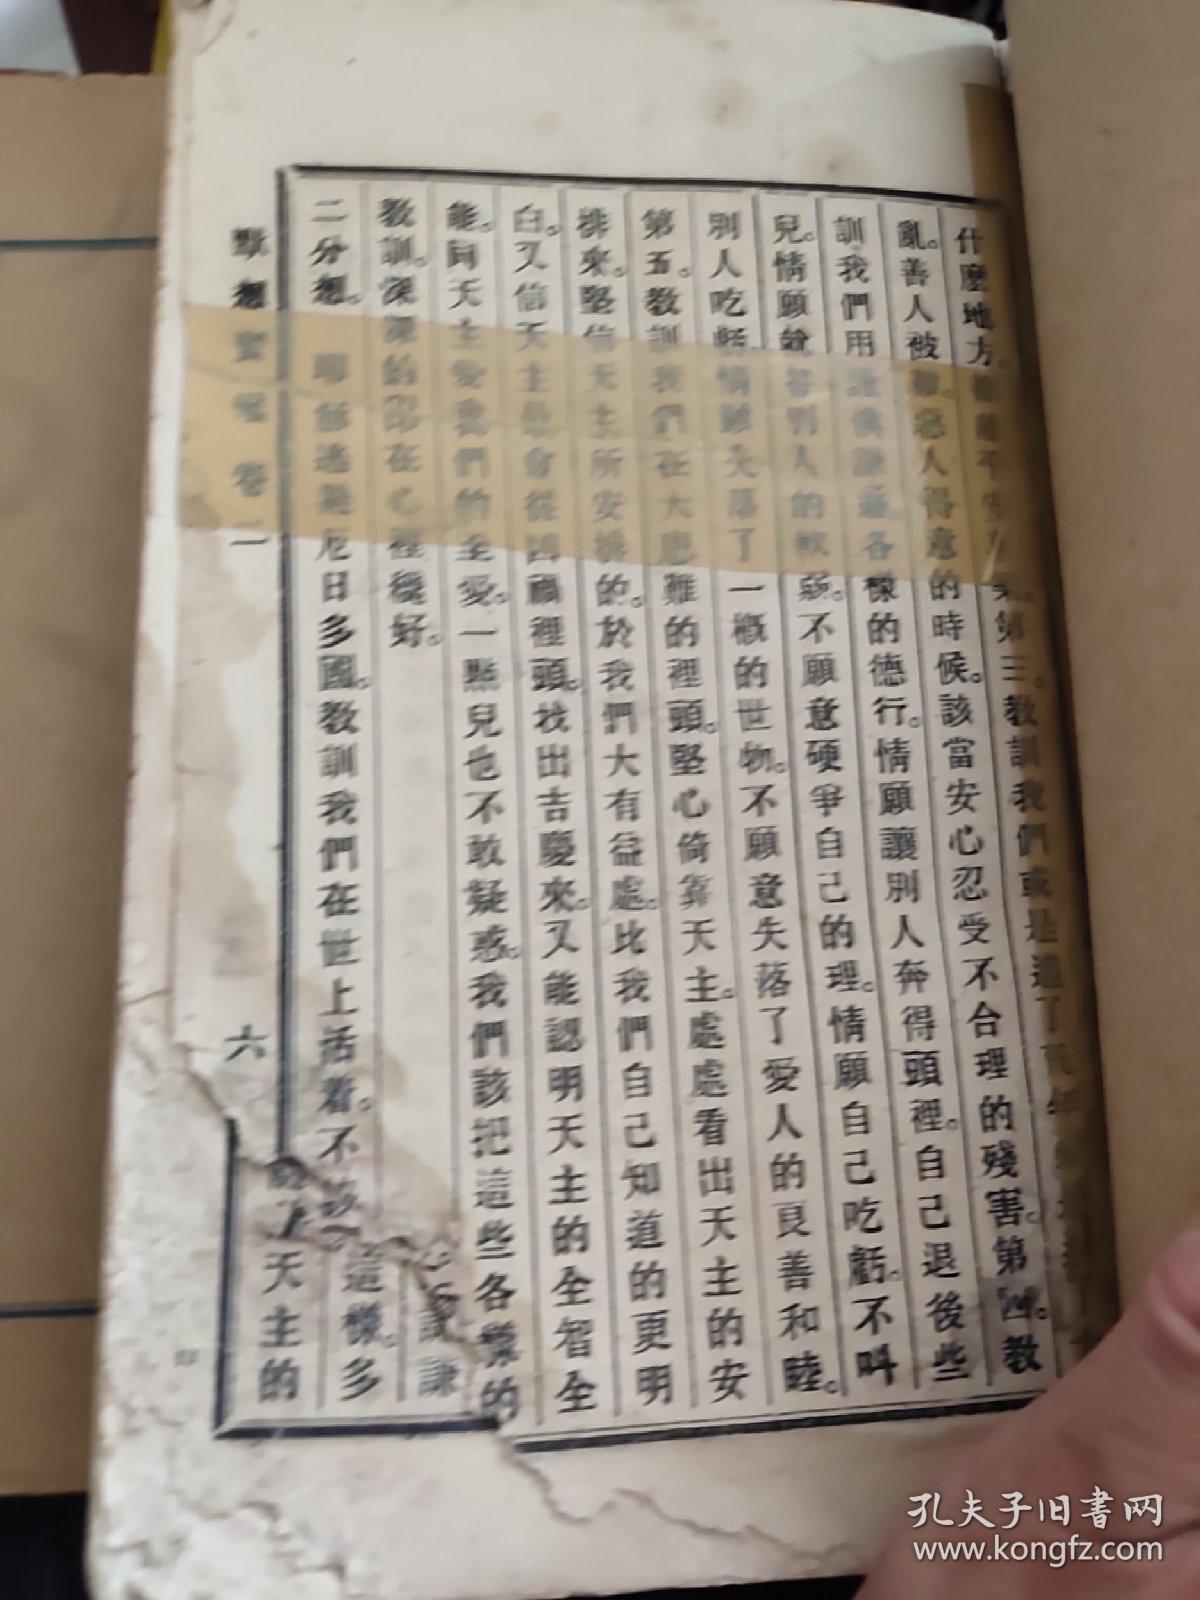 什麼地方。
第三。教訓我們或是遇了
亂。善人被難。惡人得意的時候。該當安心忍受不合理的殘害。第四。教
訓我們用謙遜各樣的德行。情願讓別人奔得頭裡。自己退後些
兒。情願就着別人的軟弱。不願意硬爭自己的理。情願自己吃虧。不叫
別人吃虧。情願失落了一概的世物。不願意失落了愛人的良善和睦。
第五。教訓我們在大患難的裡頭。堅心倚靠天主。處處看出天主的安
排來。堅信天主所安排的。於我們大有益處。比我們自己知道的更明
白。又信天主能會從凶禍裡頭。找出吉慶來。又能認明天主的全智全
能。同天主愛我們的全愛。一點兒也不敢疑惑。我們該把這些各樣的
教訓。深深的印在心裡纔好。
二分想。 耶穌逃難厄日多國。教訓我們在世上活着。不該
這樣。多
天主的
默想寶鑑卷一 六
孔夫子旧書网
www.kongfz.com